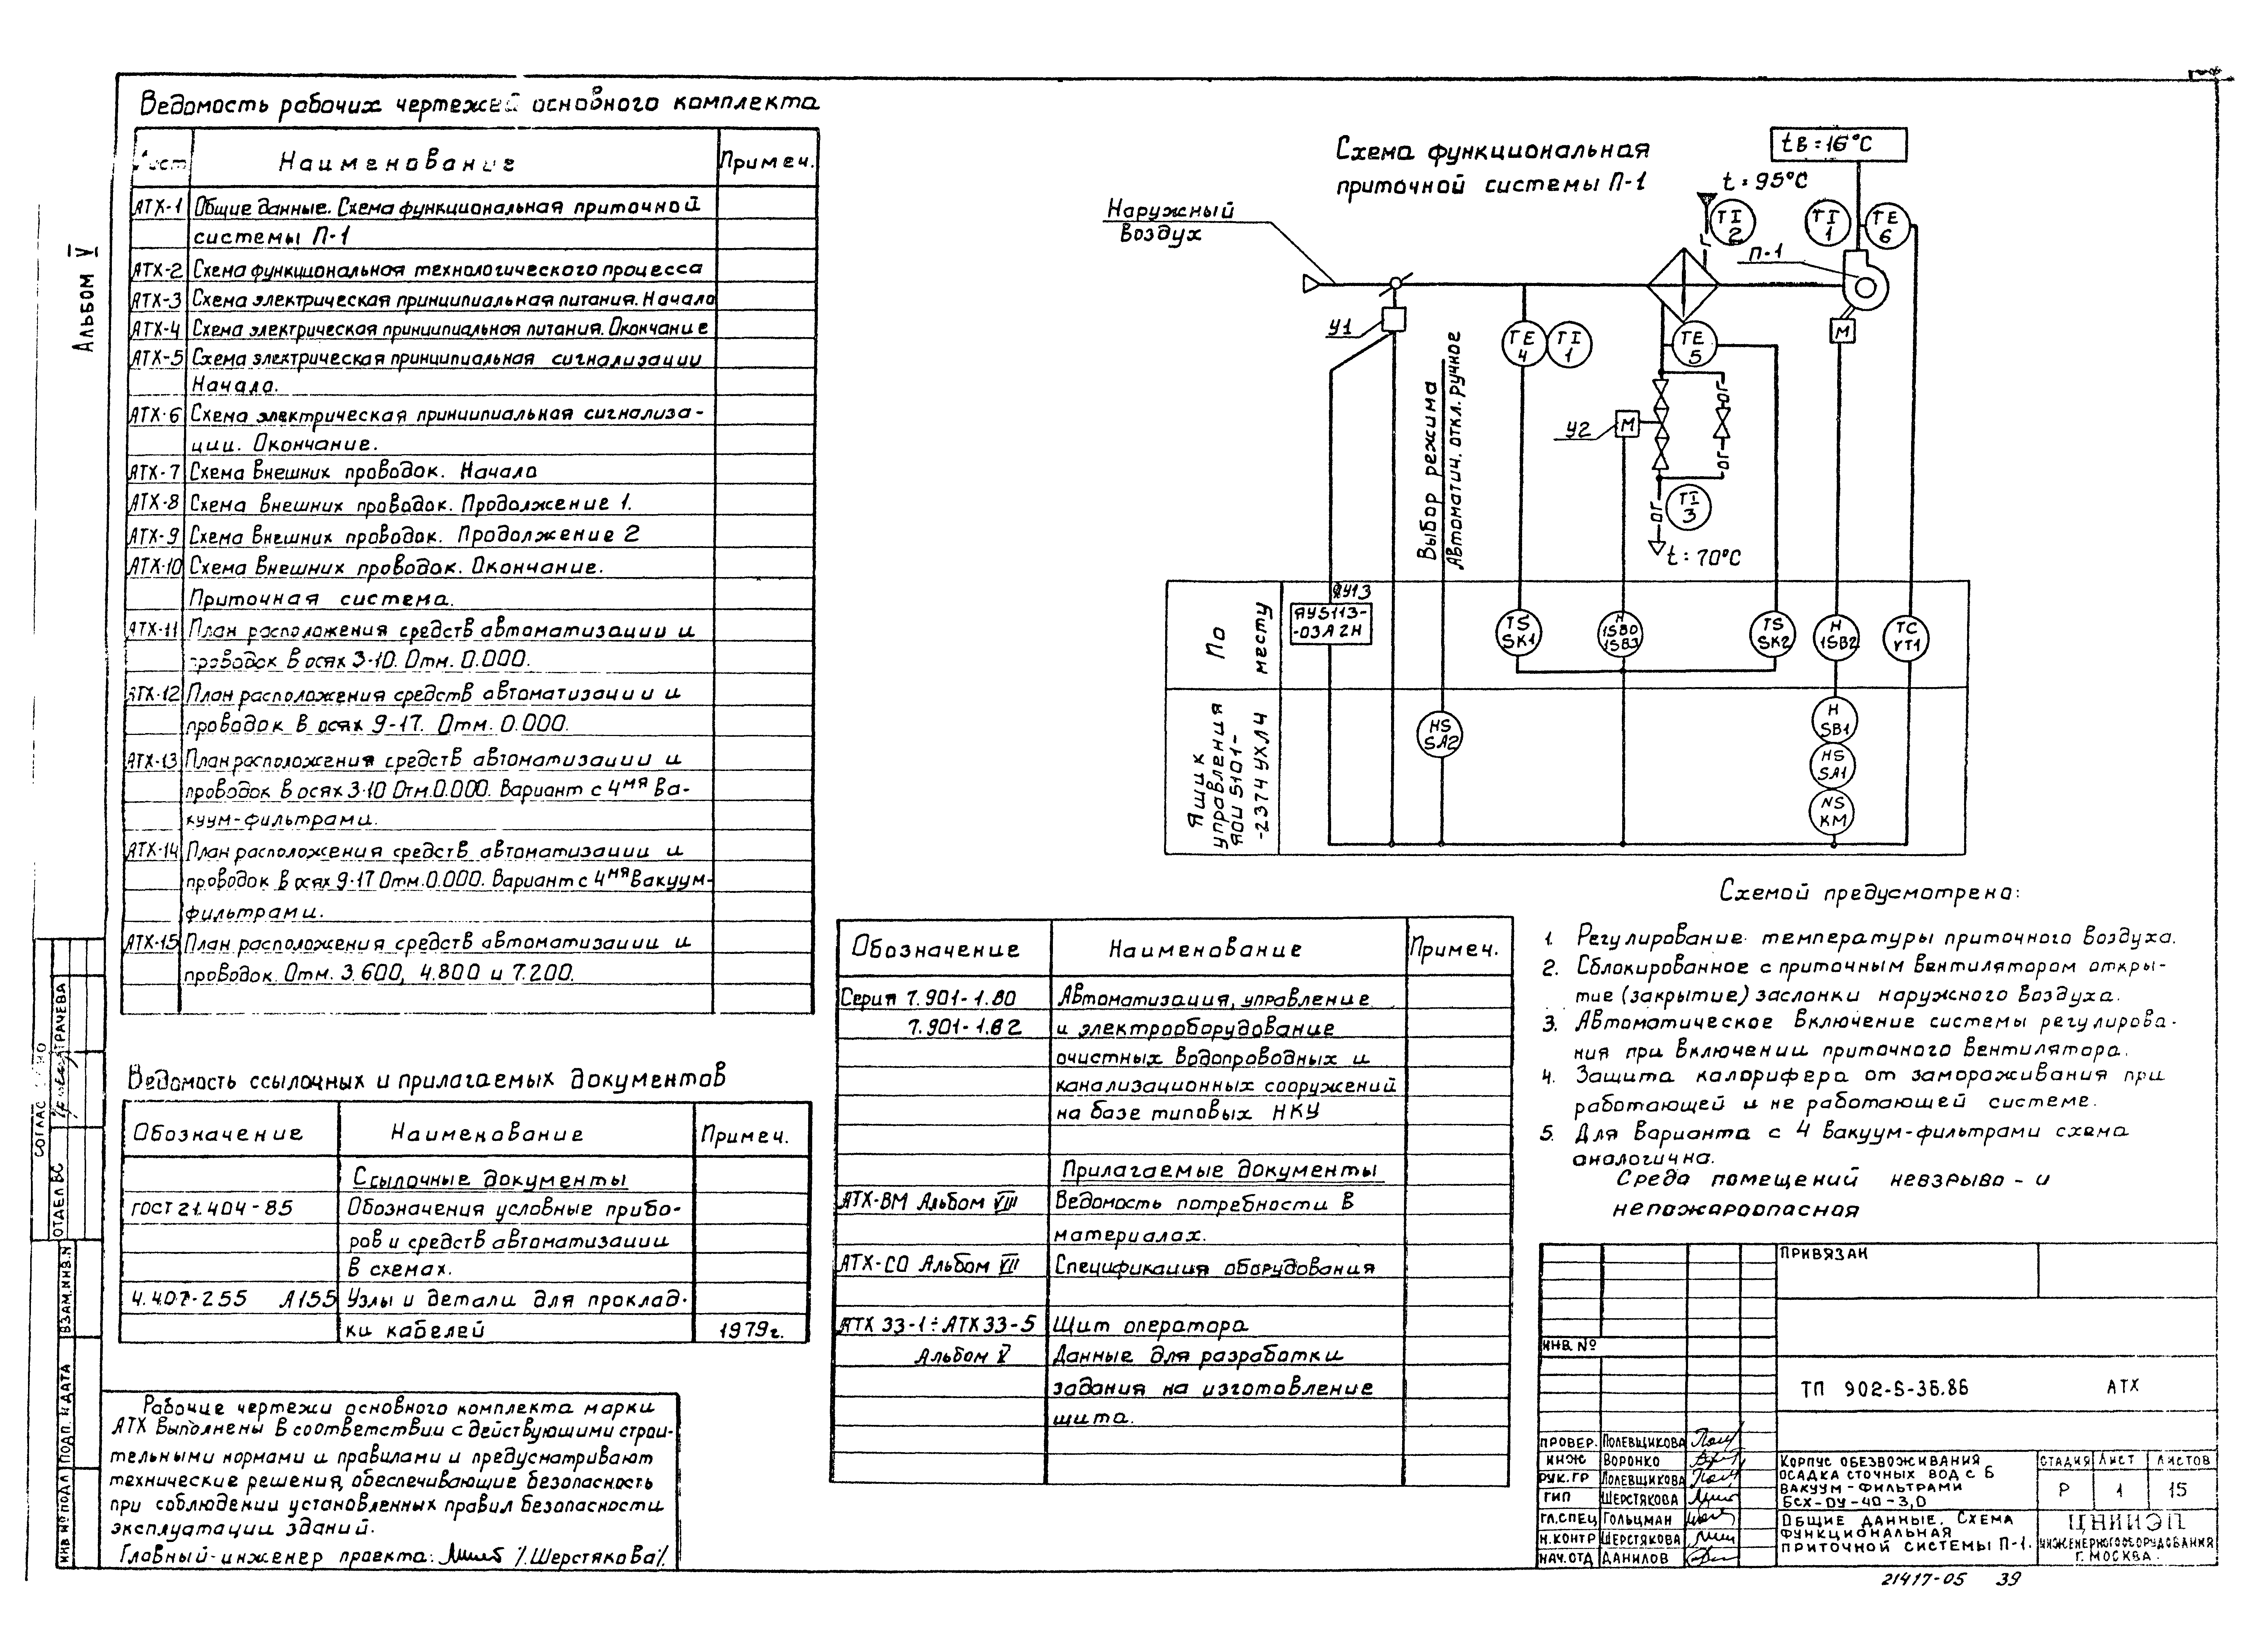 Альбом V
Ведомость рабочих чертежей основного комплекта
Лист Наименование Примеч.
АТХ-1 Общие данные. Схема функциональная приточной
системы П-1
АТХ-2 Схема функциональная технологического процесса
АТХ-3 Схема электрическая принципиальная питания. Начало
АТХ-4 Схема электрическая принципиальная питания. Окончание
АТХ-5 Схема электрическая принципиальная сигнализации
Начало.
АТХ-6 Схема электрическая принципиальная сигнализа-
ции. Окончание.
АТХ-7 Схема внешних проводок. Начало
АТХ-8 Схема внешних проводок. Продолжение 1.
АТХ-9 Схема внешних проводок. Продолжение 2
АТХ-10 Схема внешних проводок. Окончание.
Приточная система.
АТХ-11 План расположения средств автоматизации и
проводок в осях 3-10. Отм. 0.000.
АТХ-12 План расположения средств автоматизации и
проводок в осях 9-17. Отм. 0.000.
АТХ-13 План расположения средств автоматизации и
проводок в осях 3-10 Отм. 0.000. Вариант с 4мя ва-
куум-фильтрами.
АТХ-14 План расположения средств автоматизации и
проводок в осях 9-17 Отм. 0.000. Вариант с 4мя вакуум-
фильтрами.
АТХ-15 План расположения средств автоматизации и
проводок. Отм. 3.600, 4.800 и 7.200.
Ведомость ссылочных и прилагаемых документов
Обозначение Наименование Примеч.
Ссылочные документы
ГОСТ 21.404-85 Обозначения условные прибо-
ров и средств автоматизации
в схемах.
4.407-255 А155 Узлы и детали для проклад-
ки кабелей 1979г.
Рабочие чертежи основного комплекта марки
АТХ выполнены в соответствии с действующими строи-
тельными нормами и правилами и предусматривают
технические решения, обеспечивающие безопасность
при соблюдении установленных правил безопасности
эксплуатации зданий.
Главный инженер проекта: /Шерстякова/
Обозначение Наименование Примеч.
Серия 7.901-1.80 Автоматизация, управление
7.901-1.82 и электрооборудование
очистных водопроводных и
канализационных сооружений
на базе типовых НКУ
Прилагаемые документы
АТХ-ВМ Альбом VIII Ведомость потребности в
материалах.
АТХ-СО Альбом VII Спецификация оборудования
АТХ 33-1÷АТХ 33-5 Щит оператора
Альбом V Данные для разработки
задания на изготовление
щита.
Схема функциональная
приточной системы П-1
tв=16°С
t=95°С
Наружный
воздух
TI 2
TI 1
TE 6
П-1
У1
TE 4
TI 1
TE 5
М
У2
М
ог
ог
TI 3
ог
t=70°С
г
Выбор режима
Автоматич. откл. ручное
По
месту
ЯУ13
ЯУ5113-
-03А2Н
TS SK1
H 1SB0 1SB3
TS SK2
H 1SB2
TC YT1
Ящик
управления
ЯОИ 5101-
-2374 УХЛ4
HS SA2
H SB1
HS SA1
NS KM
Схемой предусмотрено:
1. Регулирование температуры приточного воздуха.
2. Сблокированное с приточным вентилятором откры-
тие (закрытие) заслонки наружного воздуха.
3. Автоматическое включение системы регулирова-
ния при включении приточного вентилятора.
4. Защита калорифера от замораживания при
работающей и не работающей системе.
5. Для варианта с 4 вакуум-фильтрами схема
аналогична.
Среда помещений невзрыво- и
непожароопасная
ПРИВЯЗАН
ИНВ. №
ТП 902-5-36.86 АТХ
ПРОВЕР. ПОЛЕВЩИКОВА
ИНЖ ВОРОНКО
РУК.ГР ПОЛЕВЩИКОВА
ГИП ШЕРСТЯКОВА
ГЛ.СПЕЦ ГОЛЬЦМАН
Н.КОНТР ШЕРСТЯКОВА
НАЧ.ОТД ДАНИЛОВ
КОРПУС ОБЕЗВОЖИВАНИЯ
ОСАДКА СТОЧНЫХ ВОД С 6
ВАКУУМ-ФИЛЬТРАМИ
БСХ-ОУ-40-3,0
СТАДИЯ ЛИСТ ЛИСТОВ
Р 1 15
ОБЩИЕ ДАННЫЕ. СХЕМА
ФУНКЦИОНАЛЬНАЯ
ПРИТОЧНОЙ СИСТЕМЫ П-1.
ЦНИИЭП
ИНЖЕНЕРНОГО ОБОРУДОВАНИЯ
Г. МОСКВА.
21417-05 39
ОТДЕЛ ВС
ТРАЧЕВА
ВЗАМ. ИНВ. N
ПОДП. И ДАТА
ИНВ № ПОДЛ